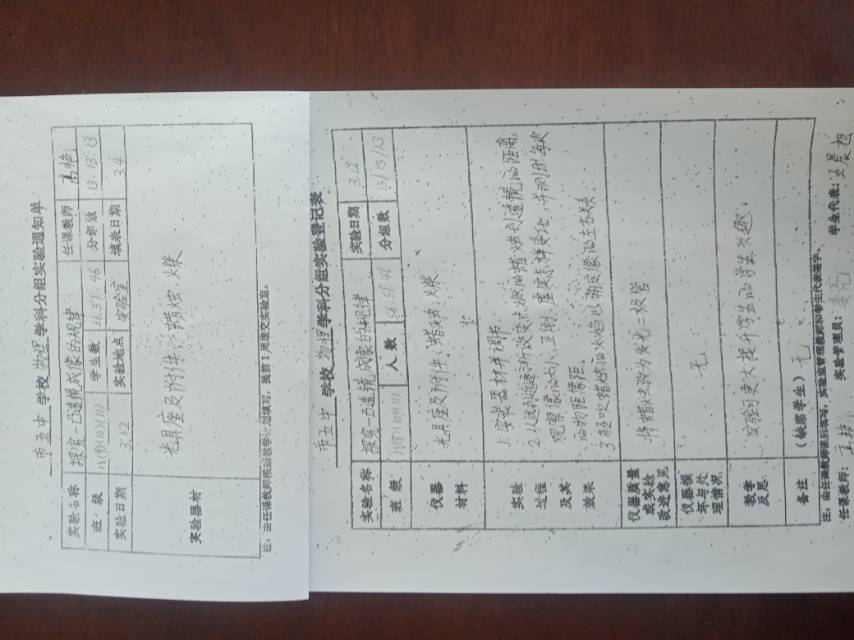 市五中 学校 物理 学科分组实验通知单
实验名称 探究凸透镜成像的规律 任课教师
班级 学生数 46 分组数 13.13.13
实验日期 3.12 实验地点 实验室 填表日期 3.4
实验器材 光具座及附件、蜡烛 火柴
注：由任课教师根据教学计划填写，提前1周送交实验室。
市五中 学校 物理 学科分组实验登记表
实验名称 探究凸透镜成像的规律 实验日期 3.12
班级 人数 分组数 13/13/13
仪器材料 光具座及附件、蜡烛 火柴
实验过程及其效果 1. 安装器材并调节.
2. 从远到近逐渐改变点燃的蜡烛到透镜的距离,
观察像的大小、正倒、虚实怎样变化,并测出每次
的物距像距.
3. 轻吹蜡烛的火焰以确定像的左右关系.
仪器质量或实验改进意见 将蜡烛改为发光二极管
仪器损坏与处理情况 无
教学反思 实验可更大提升学生的学习兴趣.
备注 （缺席学生） 无
注：由任课教师课后填写，实验室管理教师和学生代表签字。
任课教师： 实验管理员： 学生代表：